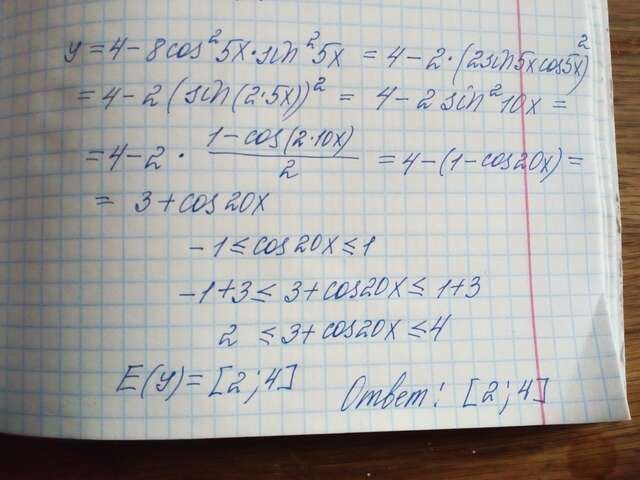 y = 4 - 8cos²5x · sin²5x = 4 - 2 · (2sin5xcos5x)²
= 4 - 2 (sin(2·5x))² = 4 - 2 sin²10x =
= 4 - 2 · (1 - cos(2·10x))/2 = 4 - (1 - cos20x) =
= 3 + cos20x
-1 ≤ cos20x ≤ 1
-1+3 ≤ 3+cos20x ≤ 1+3
2 ≤ 3+cos20x ≤ 4
E(y) = [2;4] Ответ: [2;4]